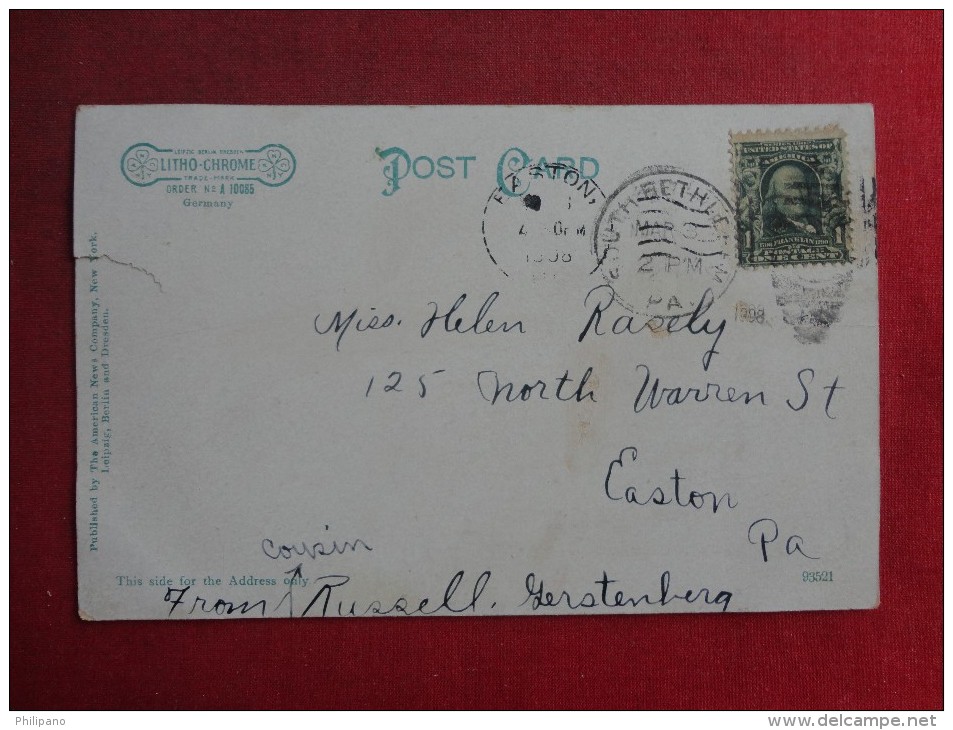 LEIPZIG BERLIN DRESDEN
LITHO-CHROME
TRADE-MARK
ORDER No A 10085
Germany
POST CARD
EASTON,
1908
SOUTH BETHLEHEM
MAR 3
2 PM
PA.
1908
UNITED STATES OF
AMERICA
FRANKLIN
1 POSTAGE 1
ONE CENT
Miss. Helen Rasely
125 North Warren St
Easton
Pa
Published by The American News Company, New York.
Leipzig, Berlin and Dresden.
cousin
This side for the Address only.
93521
From Russell. Gerstenberg
Philipano
www.delcampe.net